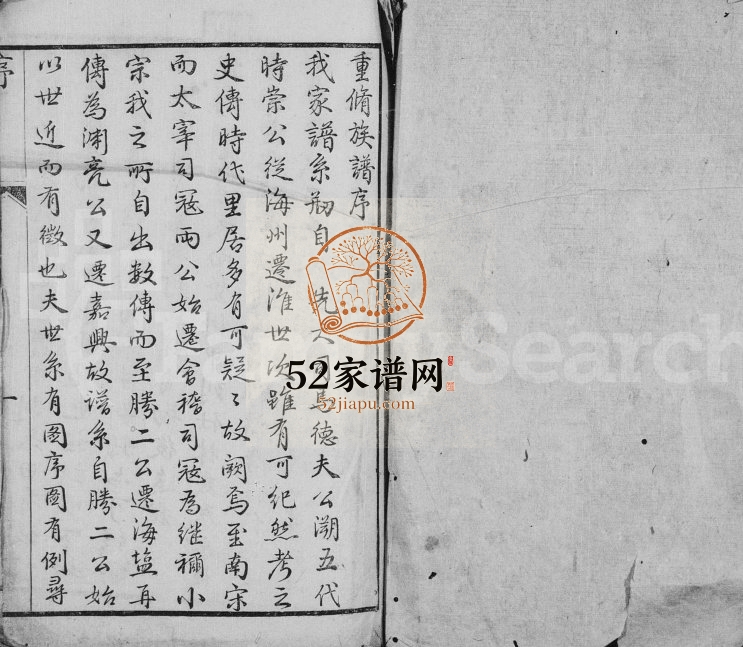 重脩族譜序
我家譜系剏自 先大司馬德夫公溯五代
時崇公從海州遷淮世次雖有可紀然考之
史傳時代里居多有可疑〻故闕焉至南宋
而太宰司寇両公始遷會稽司寇為继禰小
宗我之所自出数傳而至勝二公遷海塩再
傳為渊亮公又遷嘉興故譜系自勝二公始
以世近而有徵也夫世系有圖序圖有例尋
序
一
52家谱网
52jiapu.com
Search